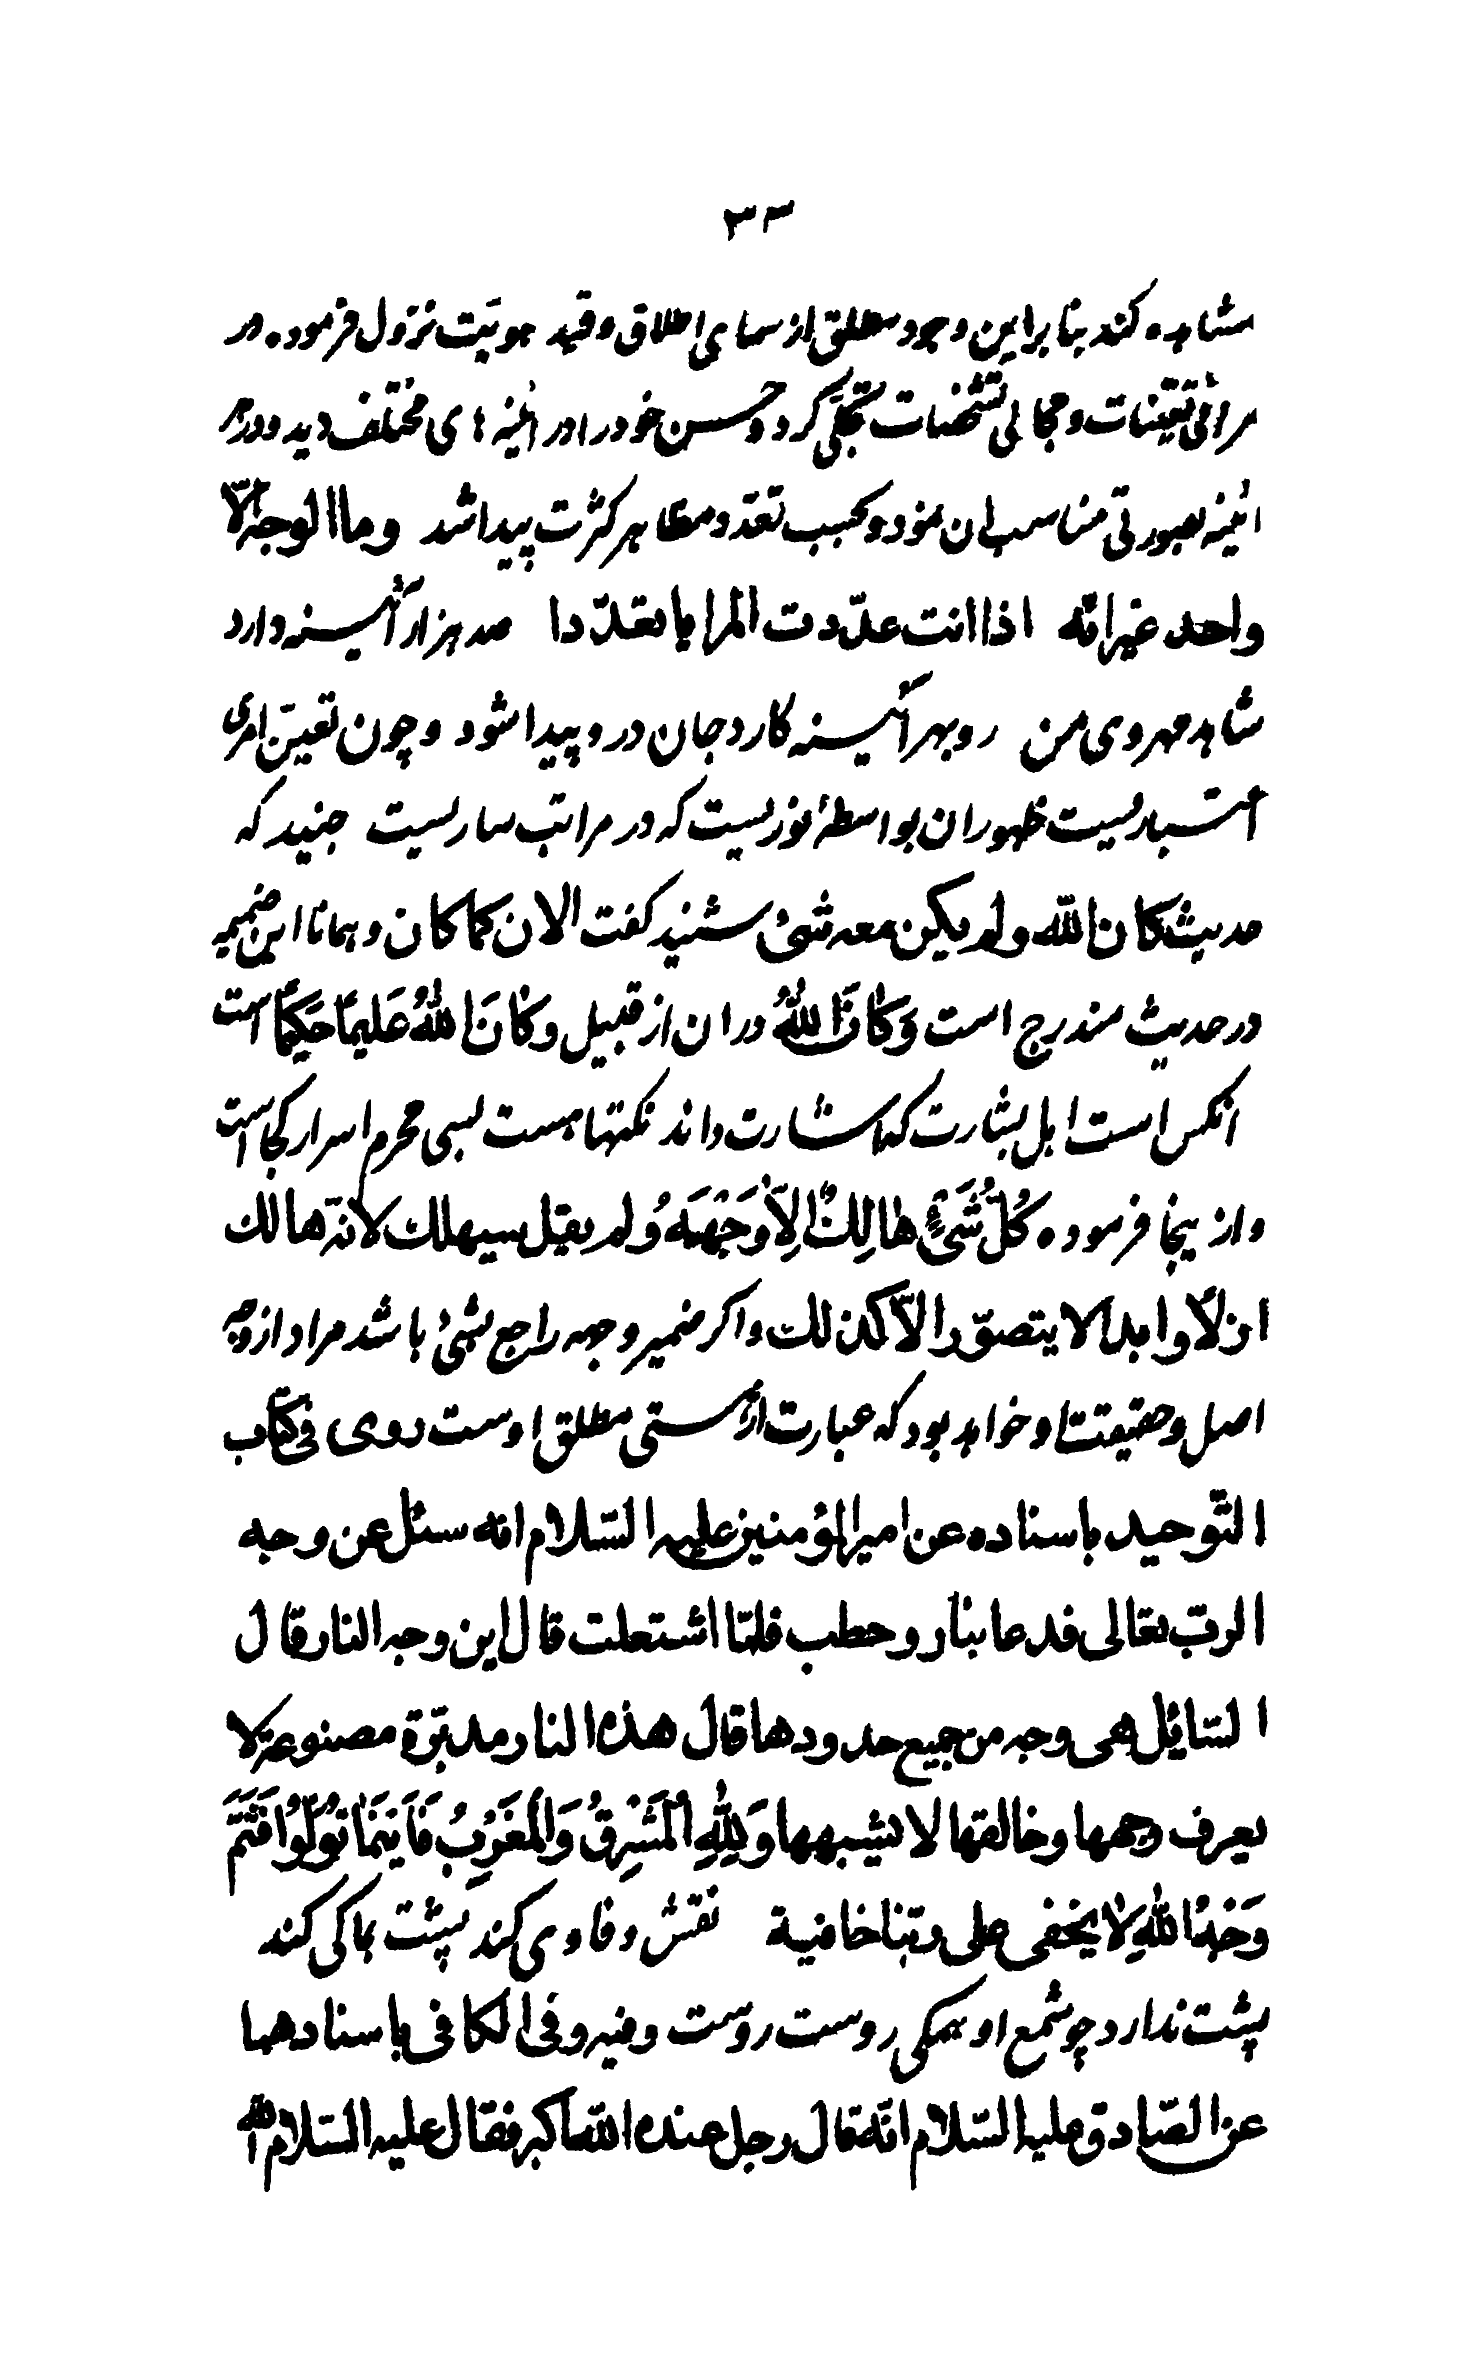 ۳۳
مشاهده کند بنا براین وجود مطلق از سمای اطلاق و قید هویّت نزول فرموده در
مرائی تعیّنات و مجالی تشخّصات تجلّی کرد و حسن خود را در ائینه های مختلف دید و در هر
ائینه بصورتی مناسب ان نمود و بحسب تعدّد مظاهر کثرت پیدا شد وما الوجه الّا
واحد غیر انّه اذا انت عدّدت المرایا تعدّدا صد هزار آئینه دارد
شاهد مهروی من رو بهر آئینه کارد جان درو پیدا شود و چون تعیّن امری
اعتباریست ظهور ان بواسطهٔ نوریست که در مراتب ساریست جنید که
حدیث کان الله ولم یکن معه شیٔ شنید کفت الان کما کان و همانا این ضمیمه
در حدیث مندرج است وَکَانَ اللهُ در ان از قبیل وَکَانَ اللهُ عَلیماً حَکیماً است
انکس است اهل بشارت که اشارت داند نکتها هست بسی محرم اسرار کجاست
و از ینجا فرموده کُلُّ شَیٍٔ هالِكٌ اِلاّٰ وَجْهَهُ ولم یقل سیهلك لانّه هالك
ازلاً وابداً لا یتصوّر الاّ کذلك و اکر ضمیر وجهه راجع بشیٔ باشد مراد از وجه
اصل و حقیقتت او خواهد بود که عبارت از هستی مطلق اوست روی فی کتاب
التّوحید باسناده عن امیر المؤمنین علیه السّلام انه سئل عن وجه
الربّ تعالی فدعا بنار وحطب فلمّا اشتعلت قال این وجه النار قال
السّایٔل هی وجه من جمیع حدودها قال هذه النار مدبّرة مصنوعة لا
یعرف وجهها وخالقها لا یشبهها وَ لِلهِ الْمَشْرِقُ وَالْمَغْرِبُ فَاَیْنَمٰا تُوَلُّوا فَثَمَّ
وَجْهُ اللهِ لا یخفی علی ربّنا خافیة نقش و فا وی کند پشت بما کی کند
پشت ندارد چو شمع او همکی روست روست و فیه و فی الکافی باسنادهما
عن الصّادق علیه السّلام انّه قال رجل عنده الله اکبر فقال علیه السّلام الله